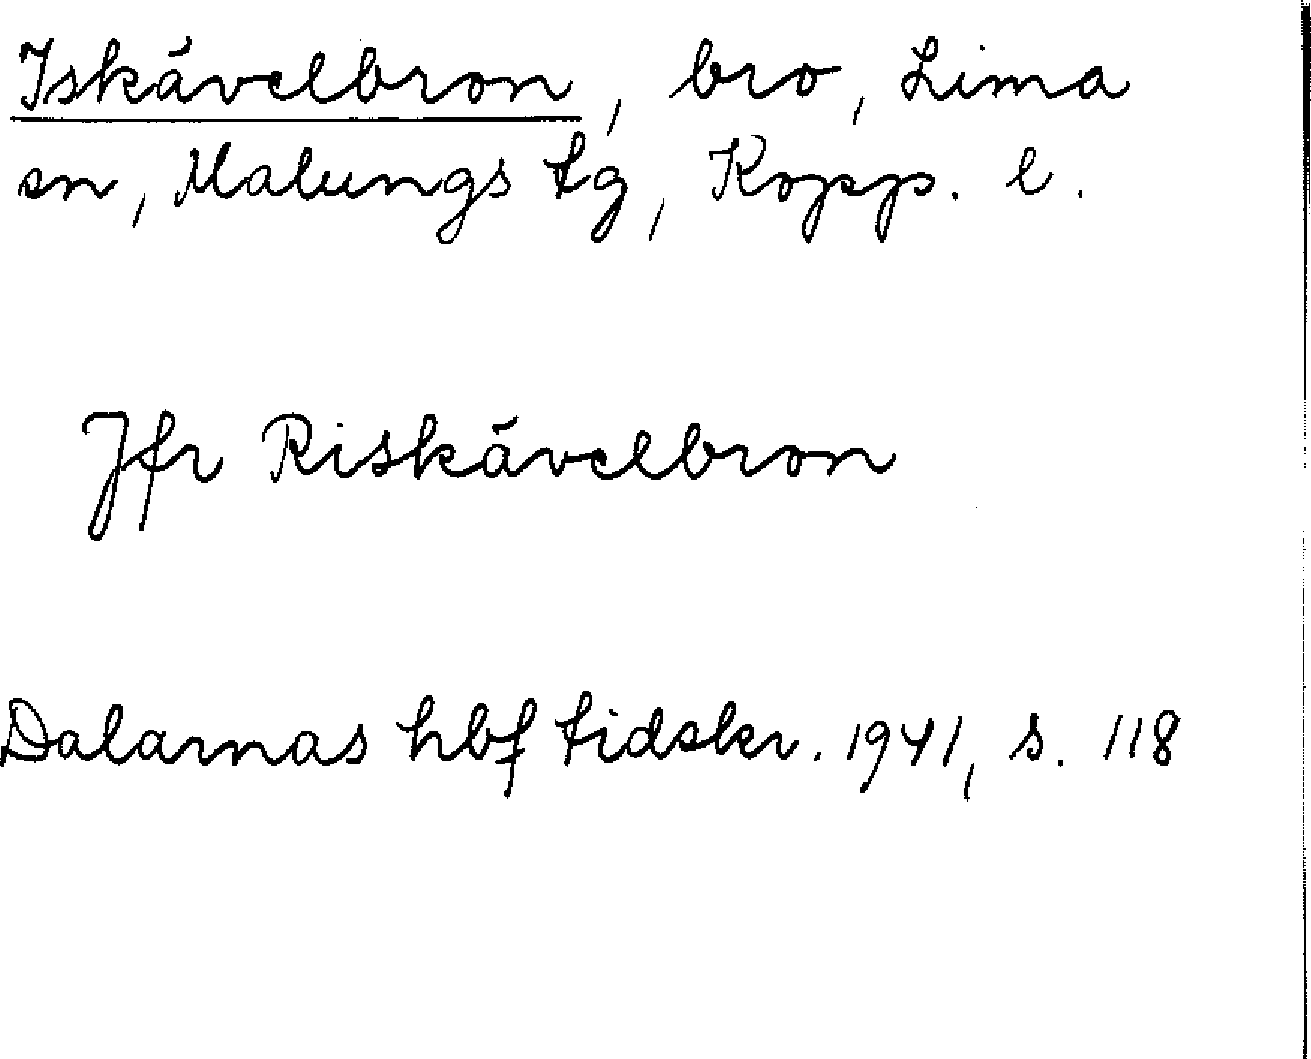 Iskåvelbron, bro, Lima
sn, Malungs tg, Kopp. l.
Jfr Riskåvelbron
Dalarnas hbf tidskr. 1941, s. 118